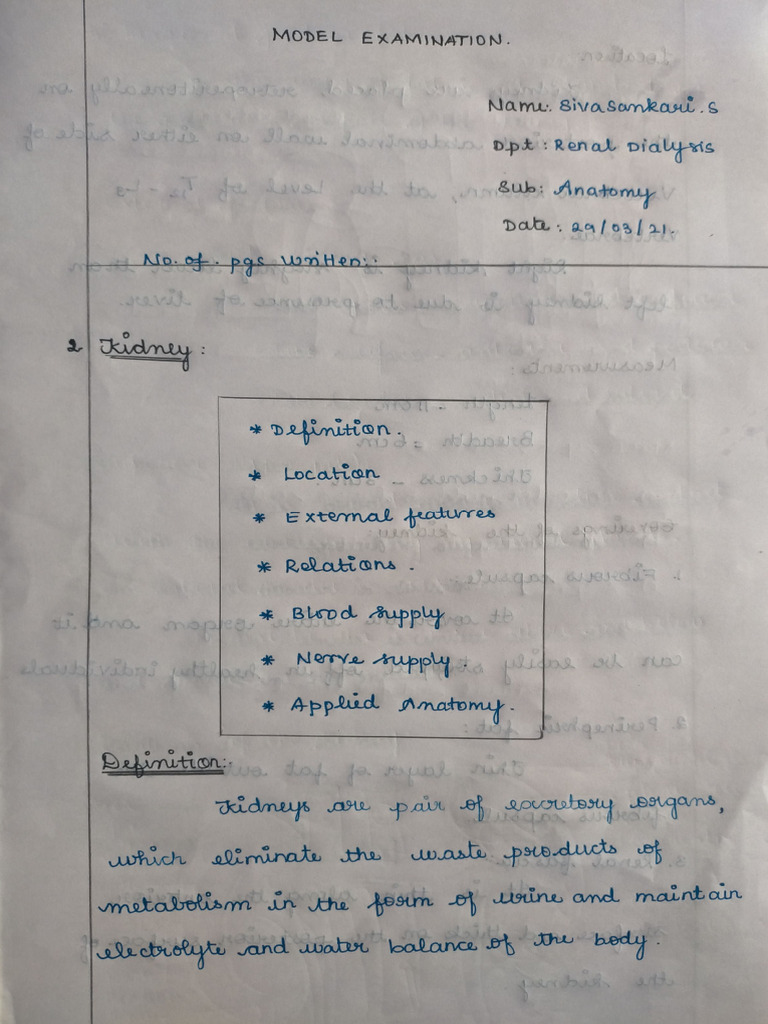 MODEL EXAMINATION.
Name: Sivasankari.S
Dpt : Renal Dialysis
Sub: Anatomy
Date : 29/03/21.
No. of. pgs written:
2 Kidney :
* Definition.
* Location
* External features
* Relations.
* Blood supply
* Nerve supply.
* Applied Anatomy.
Definition:-
Kidneys are pair of excretory organs,
which eliminate the waste products of
metabolism in the form of urine and maintain
electrolyte and water balance of the body.